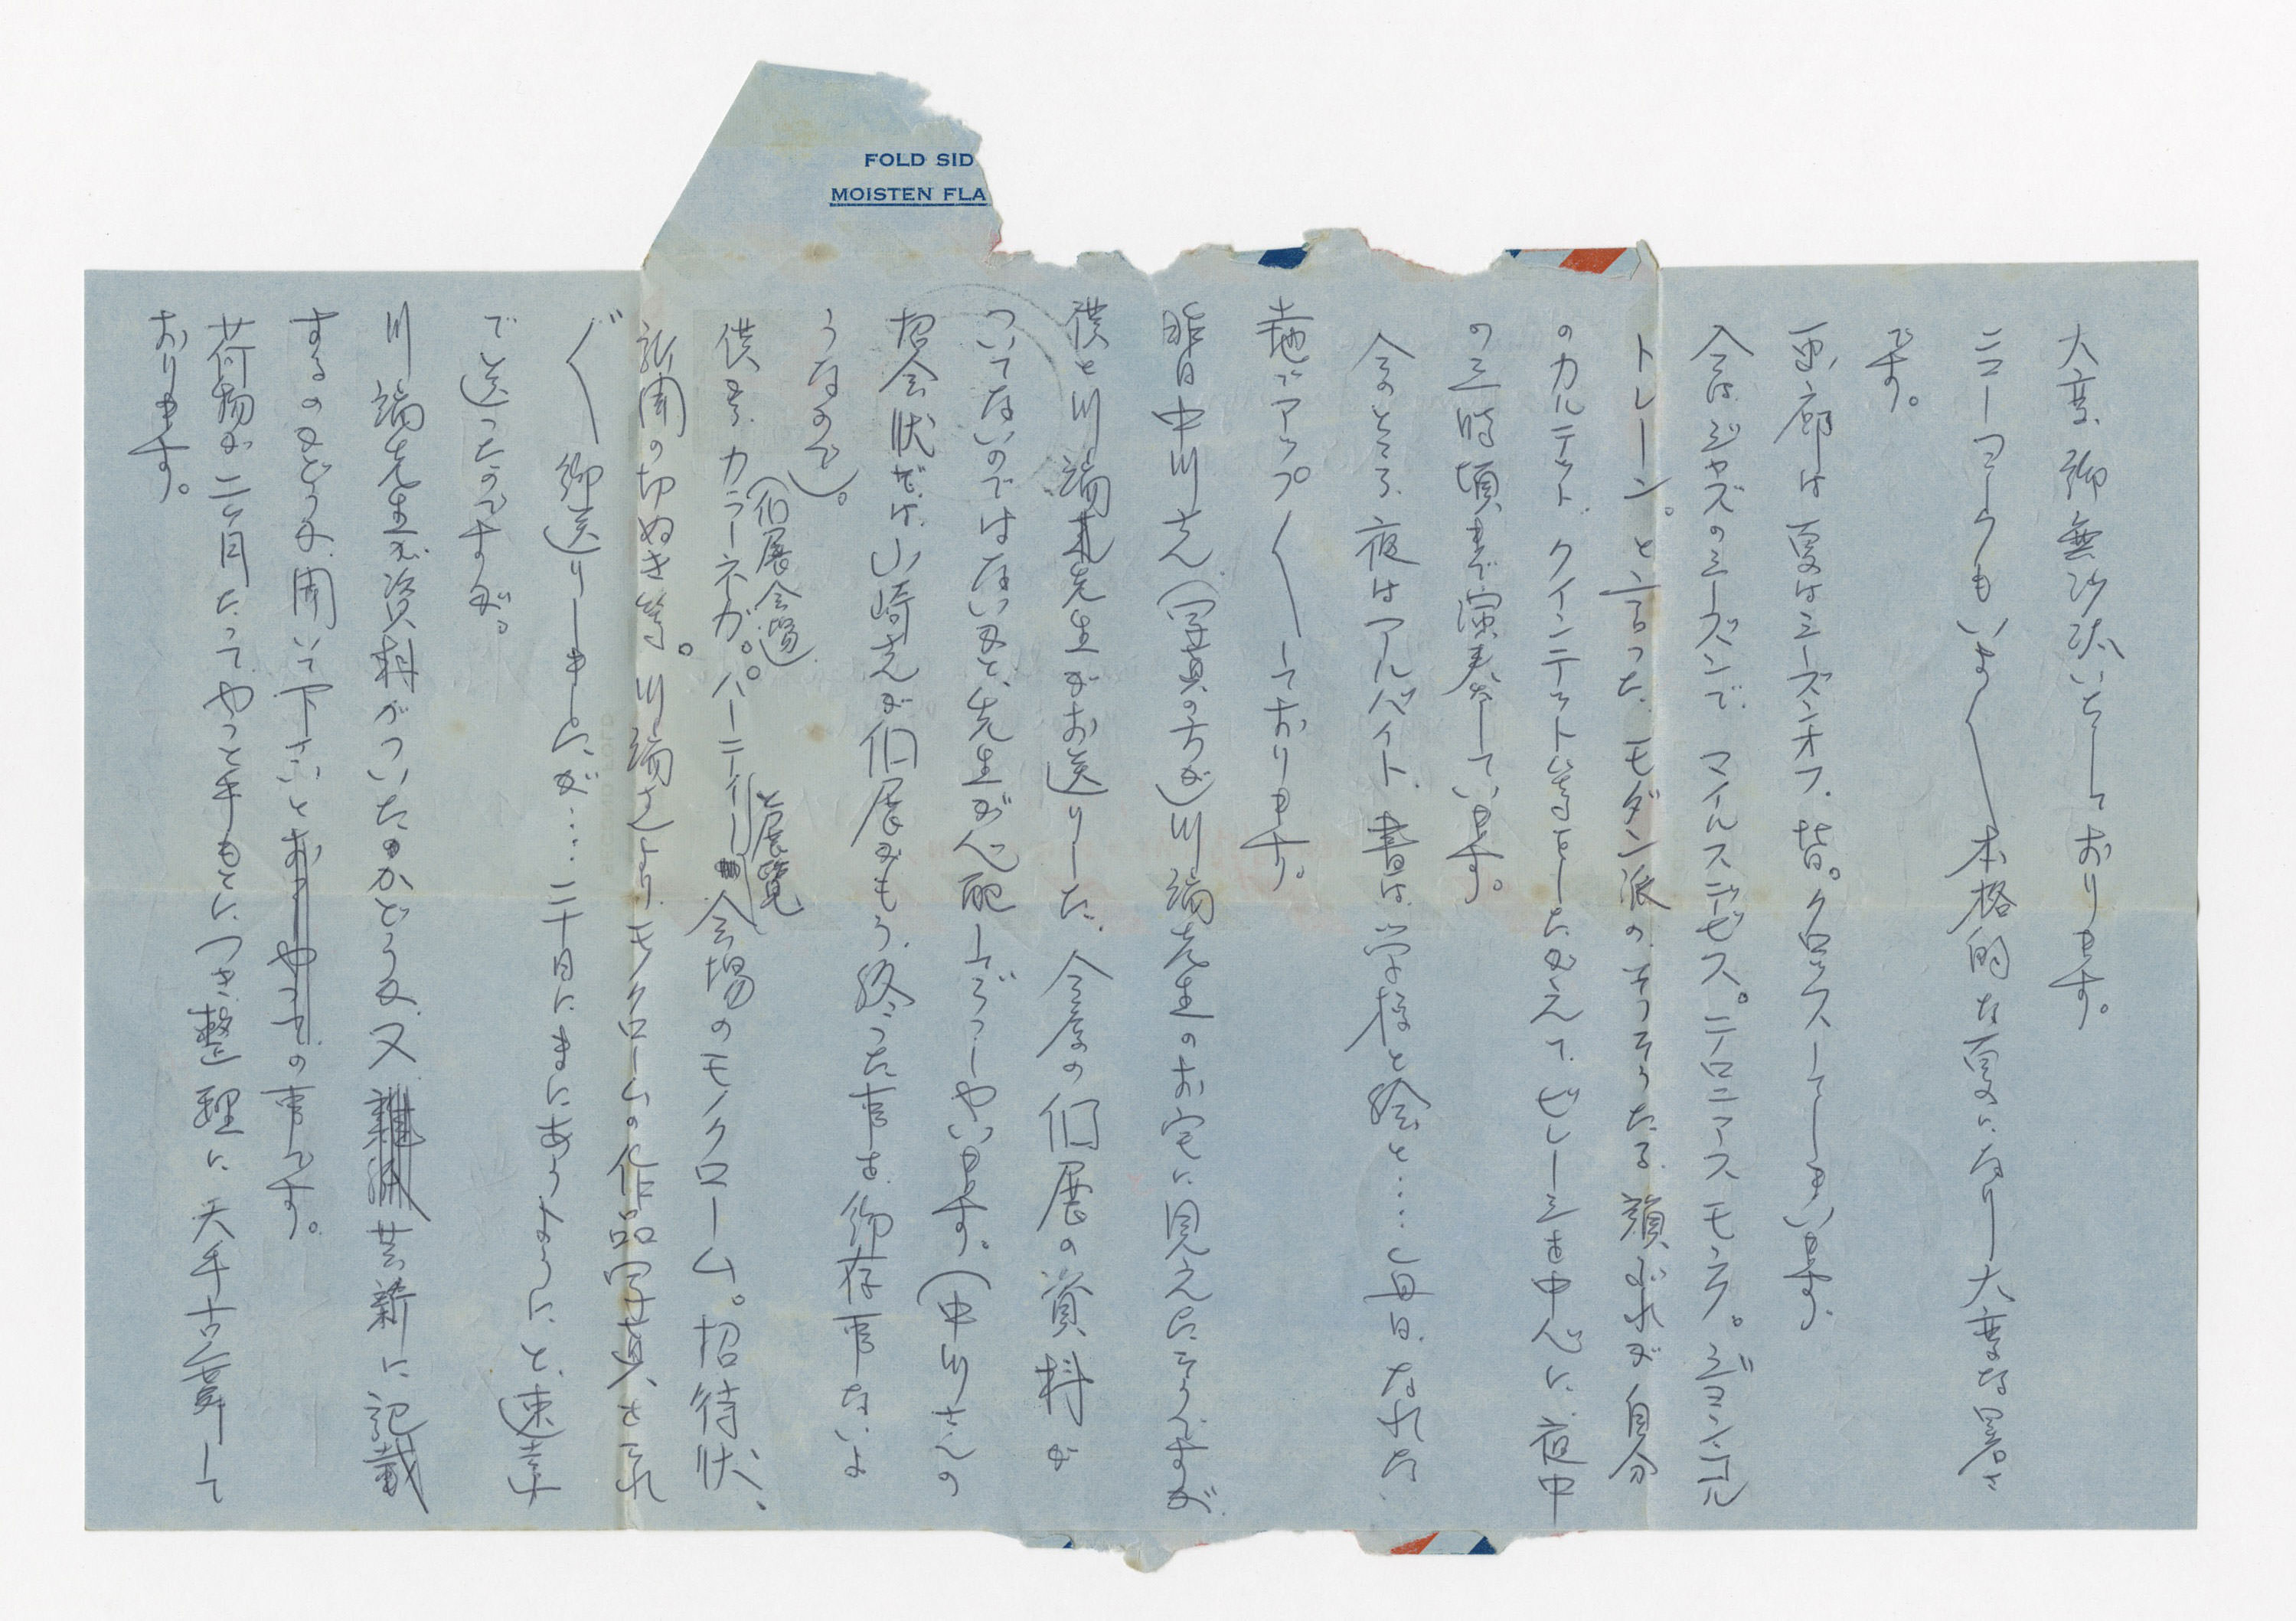 FOLD SID
MOISTEN FLA
大変御無沙汰いたしております。
ニューヨークもいよ〱本格的な夏になり大変な暑さ
です。
画廊は夏はシーズンオフ、皆。クローズしてしまいます。
今はジャズのシーズンで、マイルスデービス。テロニアスモンク。ジョンコル
トレーン。と言った、モダン派のそうそうたる顔ぶれが自分
のカルテット、クインテット等をしたがえて、ビレーヂを中心に、夜中
の三時頃まで演奏をしています。
今のところ、夜はアルバイト、昼は学校と絵と……毎日、なれた
土地でアップ〱しております。
昨日中川さん(写真の方が)川端先生のお宅に見えたそうですが
僕と川端先生がお送りした、今度の個展の資料が
ついてないのではないかと、先生が心配しがっしゃいます。(中川さんの
招会状だけ、山崎さんが個展がもう、終った事は御存事ないよ
うなので)。
僕から、カラーネガ。パーティーと展覧会場のモノクローム。招待状、
(個展会場)
新聞の切ぬき等。川端さんよりモノクロームの作品写真をそれ
〲御送りしましたが…二十日にまにあうようにと、速達
で送ったのですが。
川端先生が資料がついたのかどうか、又芸新に記載
するのかどうか、聞いて下さいとの事です。
荷物が二ヶ月たって、やっと手もとにつき整理に大手古舞して
おります。